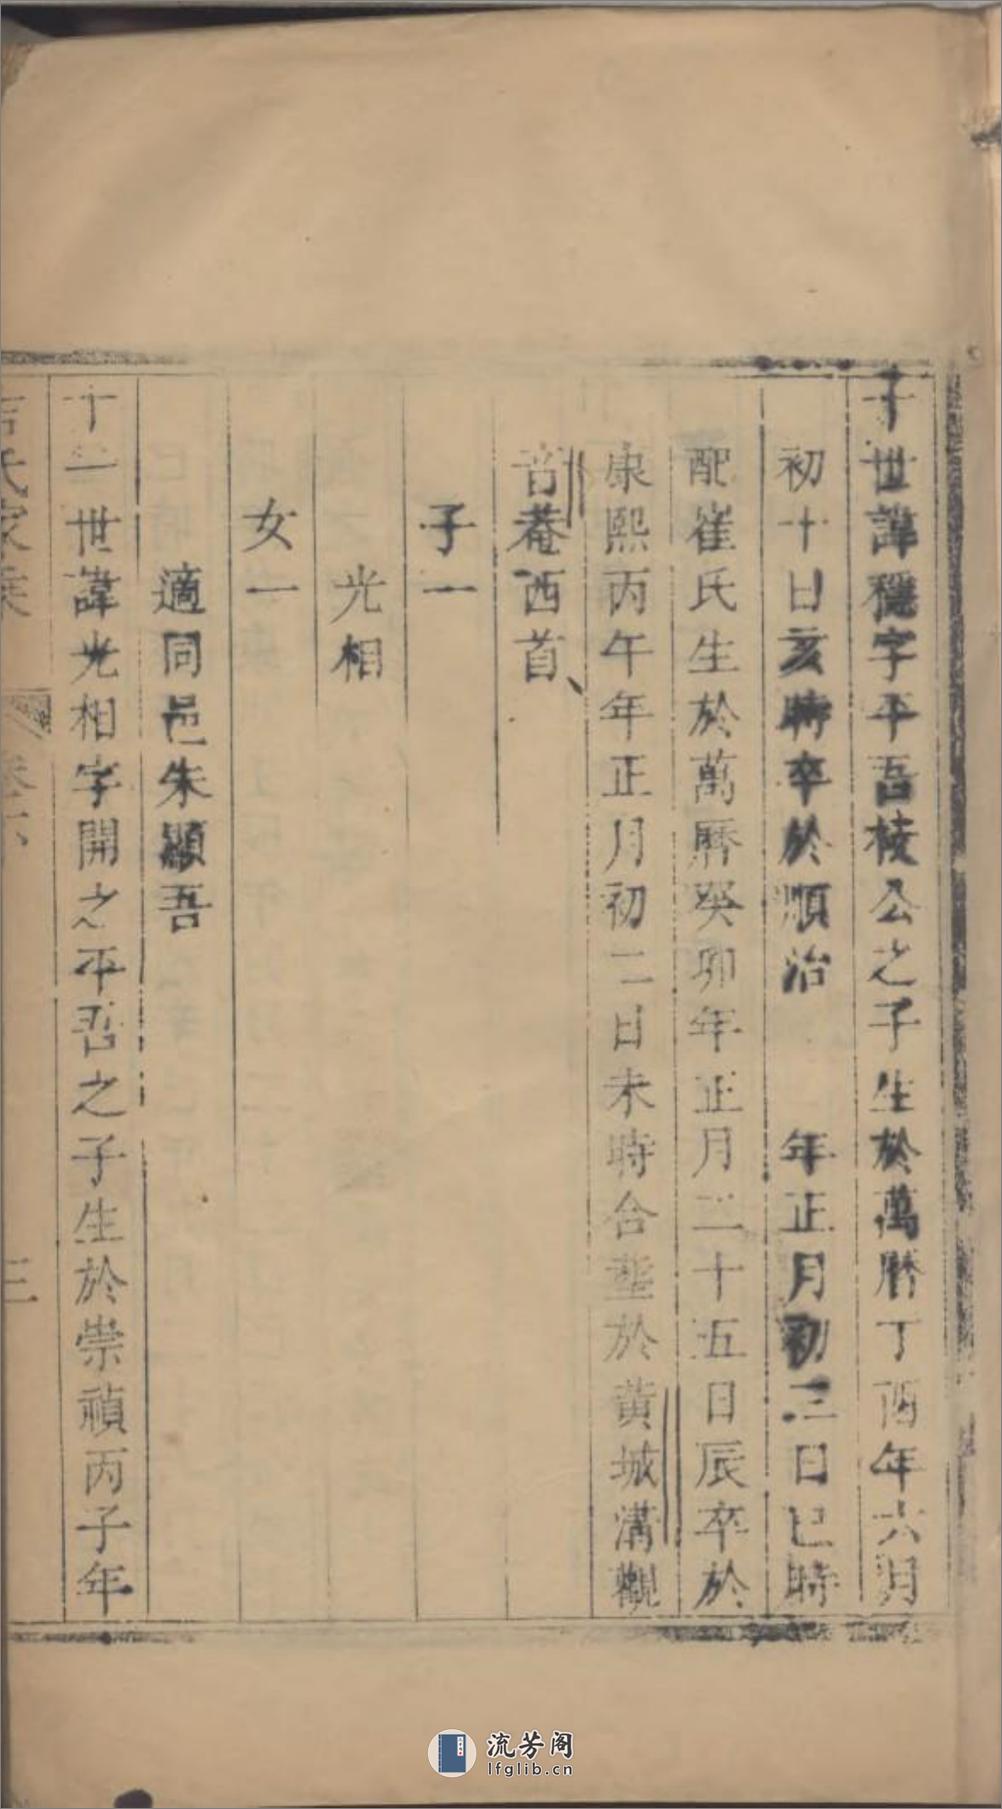 十世諱穩字平吾棱公之子生於萬曆丁酉年六月
初十日亥時卒於順治　年正月初三日巳時
配崔氏生於萬曆癸卯年正月二十五日辰卒於
康熙丙午年正月初二日未時合塟於黃城溝觀
音菴西首
子一
光相
女一
適同邑朱顯吾
十一世諱光相字開之平吾之子生於崇禎丙子年
三
流芳阁
lfglib.cn